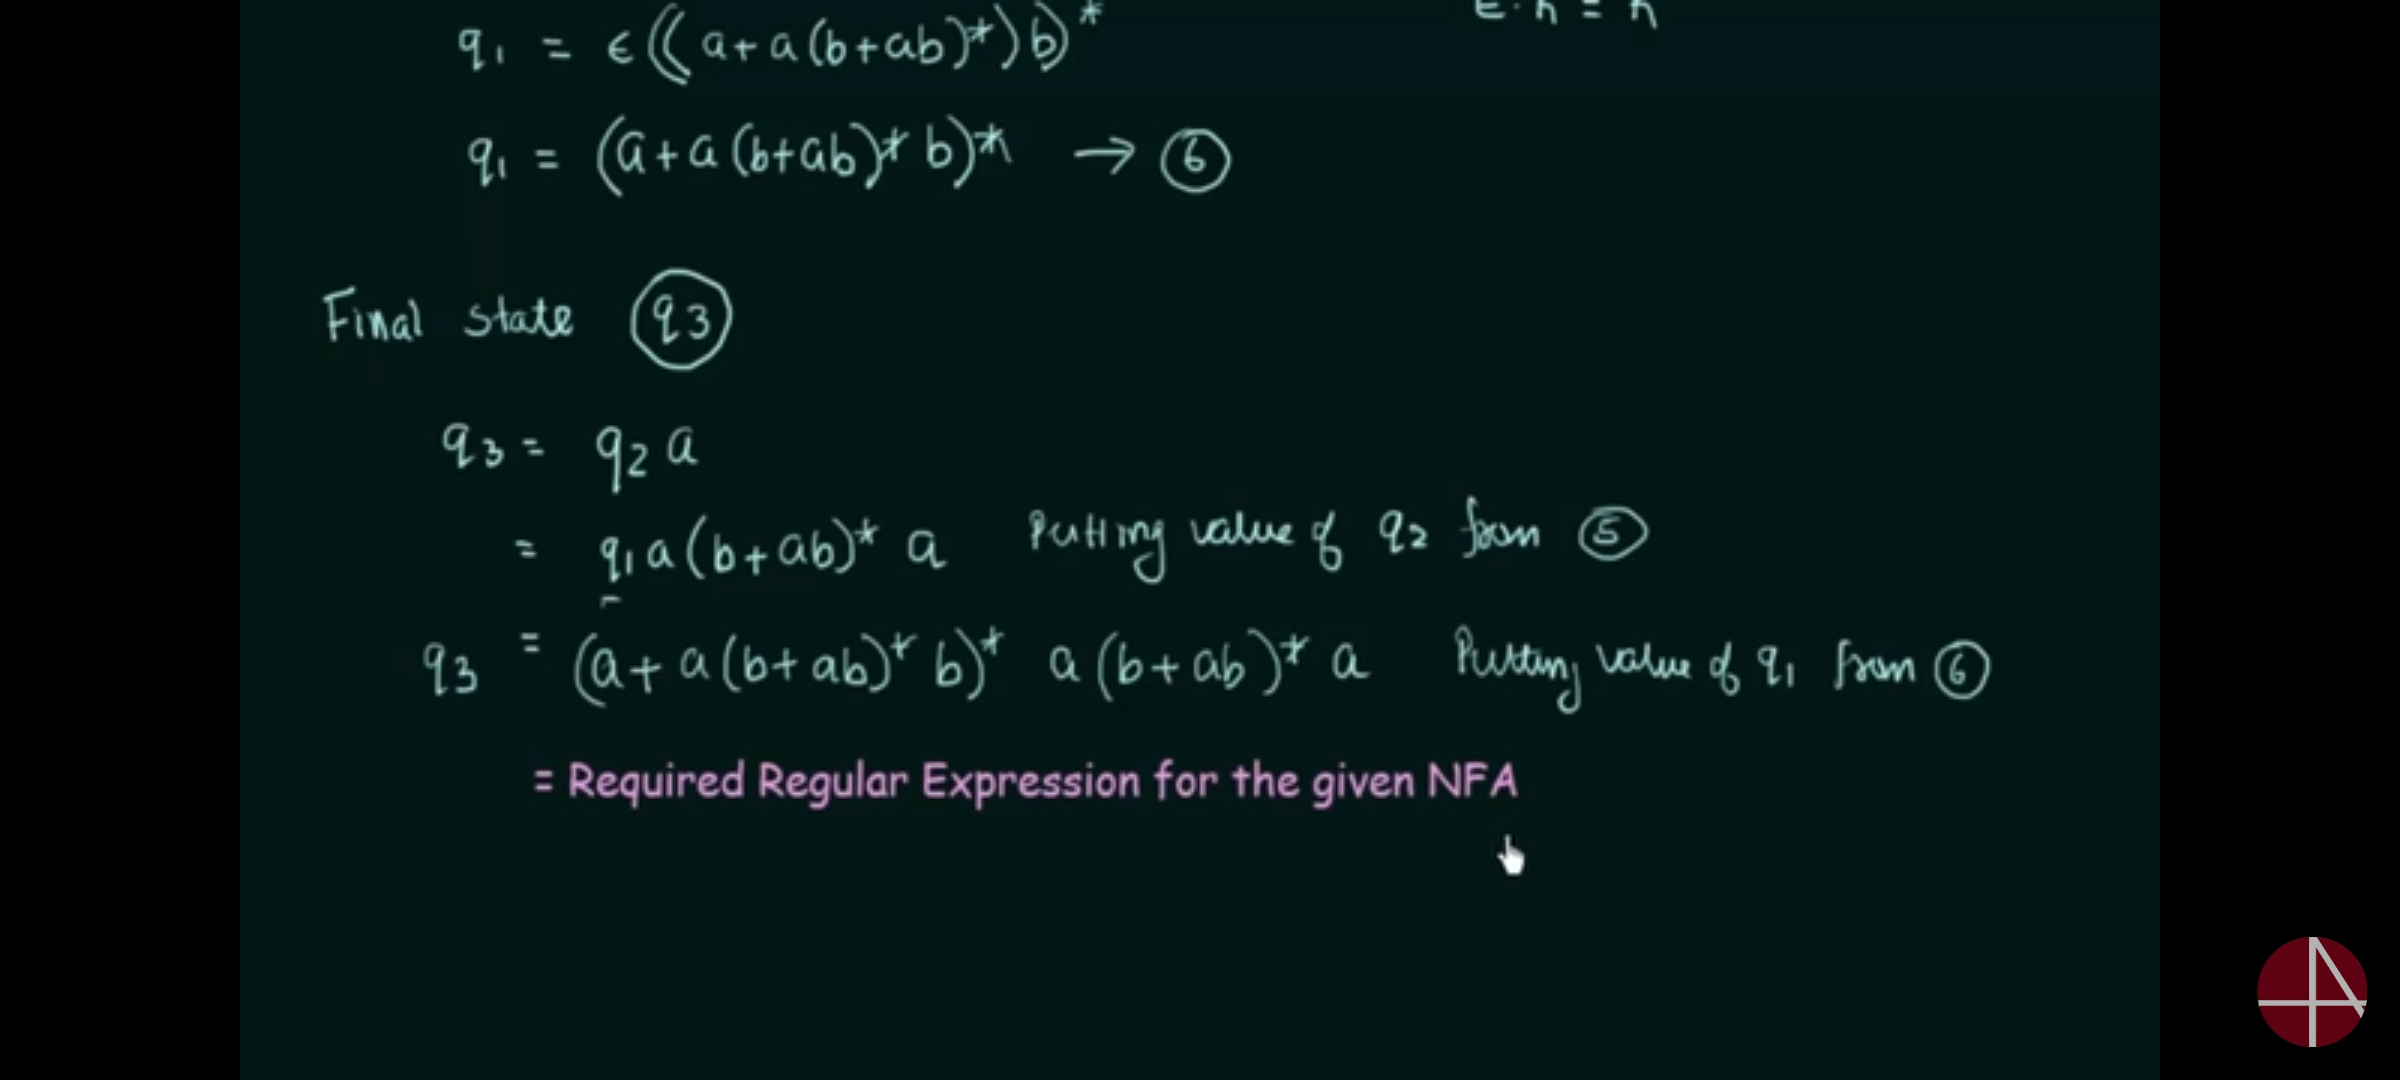 q1 = ϵ((a+a(b+ab)*)b)*
ϵ·R = R
q1 = (a+a(b+ab)* b)* → ⑥
Final state q3
q3 = q2 a
= q1 a(b+ab)* a Putting value of q2 from ⑤
q3 = (a+a(b+ab)* b)* a(b+ab)* a Putting value of q1 from ⑥
= Required Regular Expression for the given NFA